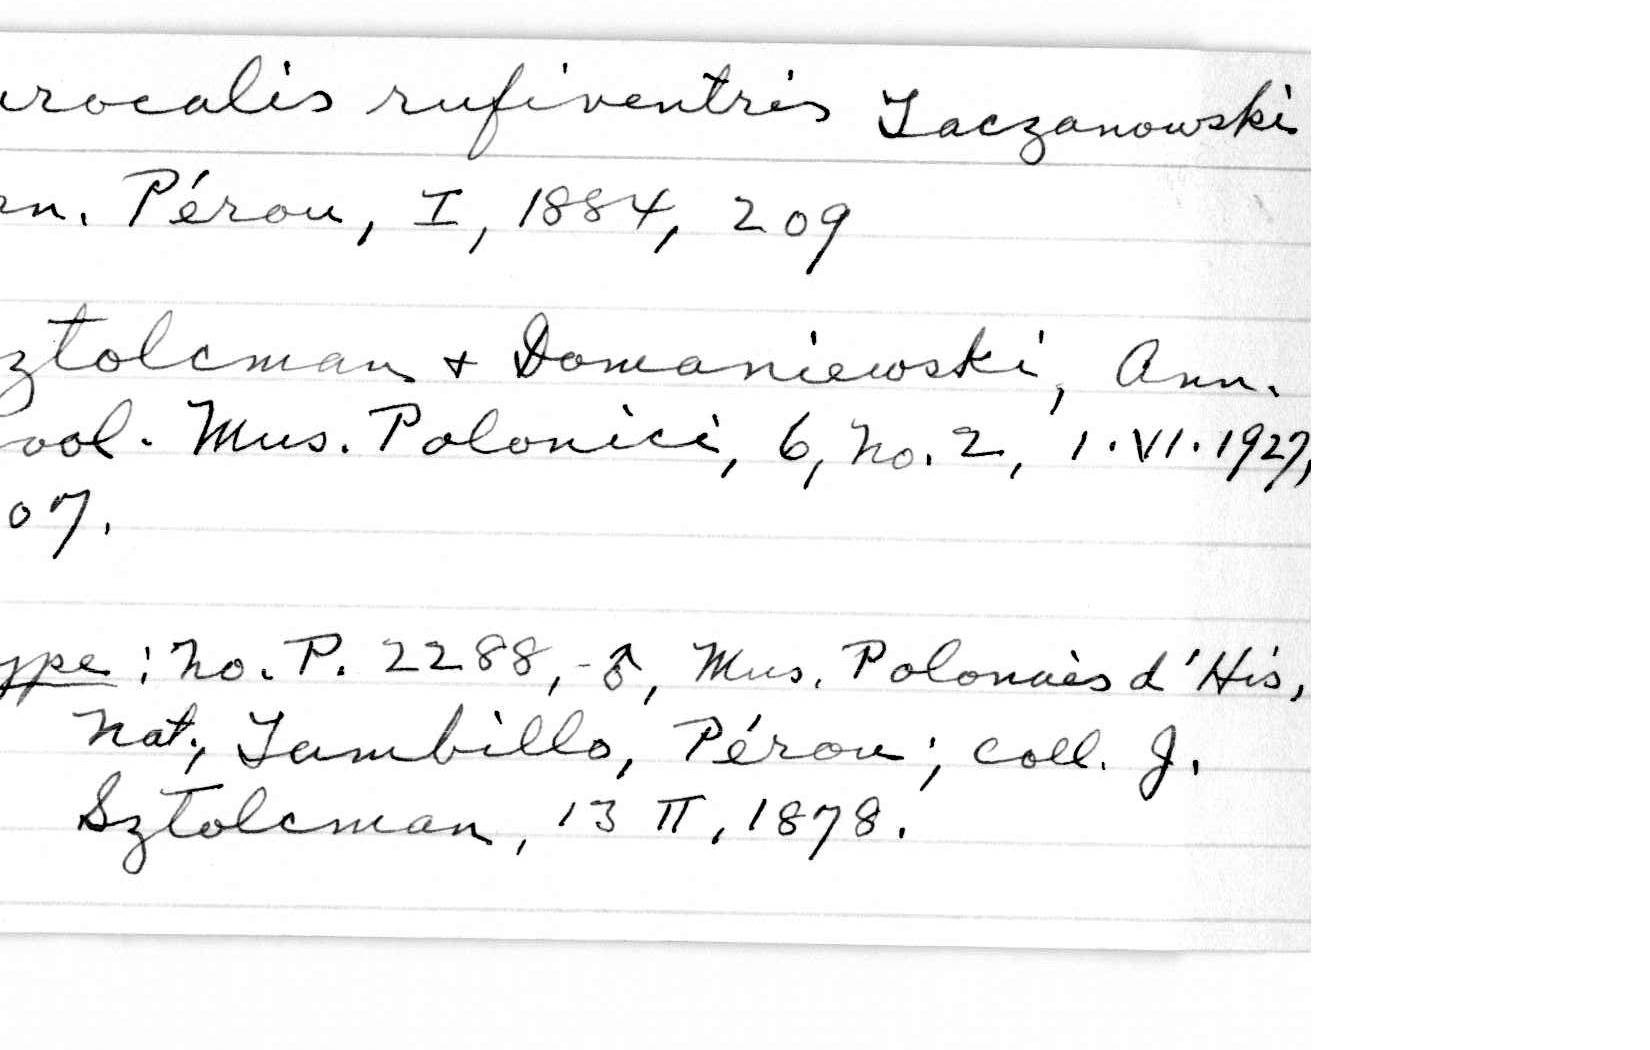 urocalis rufiventris Taczanowski
rn. Pérou, I, 1884, 209
ztolcman + Domaniewski, Ann.
ool. Mus. Polonici, 6, No. 2, 1.VI.1927,
07.
ype: No. P. 2288, -♂, Mus. Polonais d'His,
Nat; Tambillo, Pérou; coll. J.
Sztolcman, 13 II, 1878.